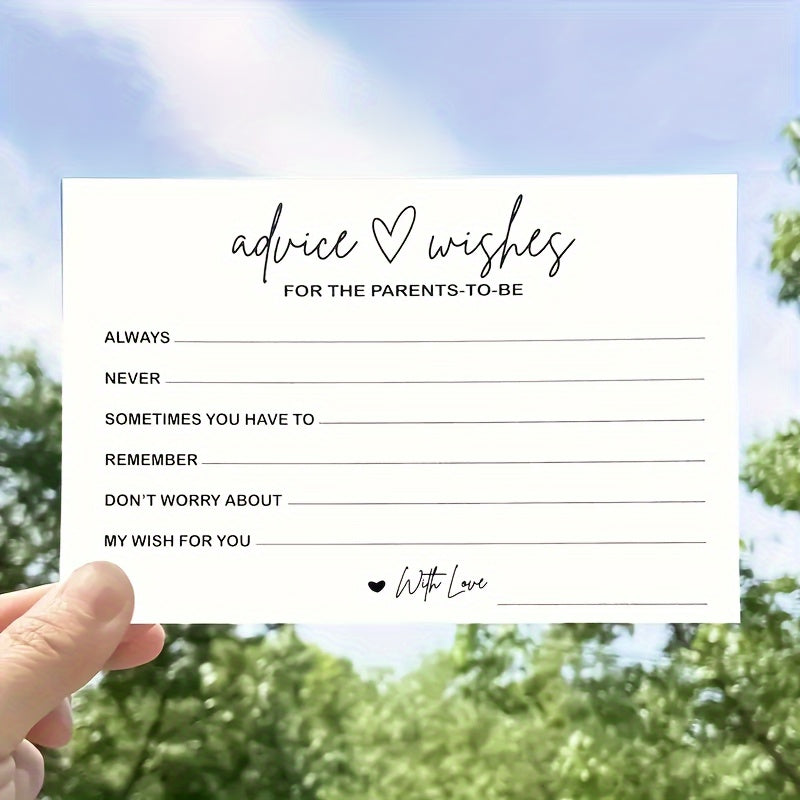 advice ♡ wishes
FOR THE PARENTS-TO-BE
ALWAYS
NEVER
SOMETIMES YOU HAVE TO
REMEMBER
DON'T WORRY ABOUT
MY WISH FOR YOU
♥ With Love